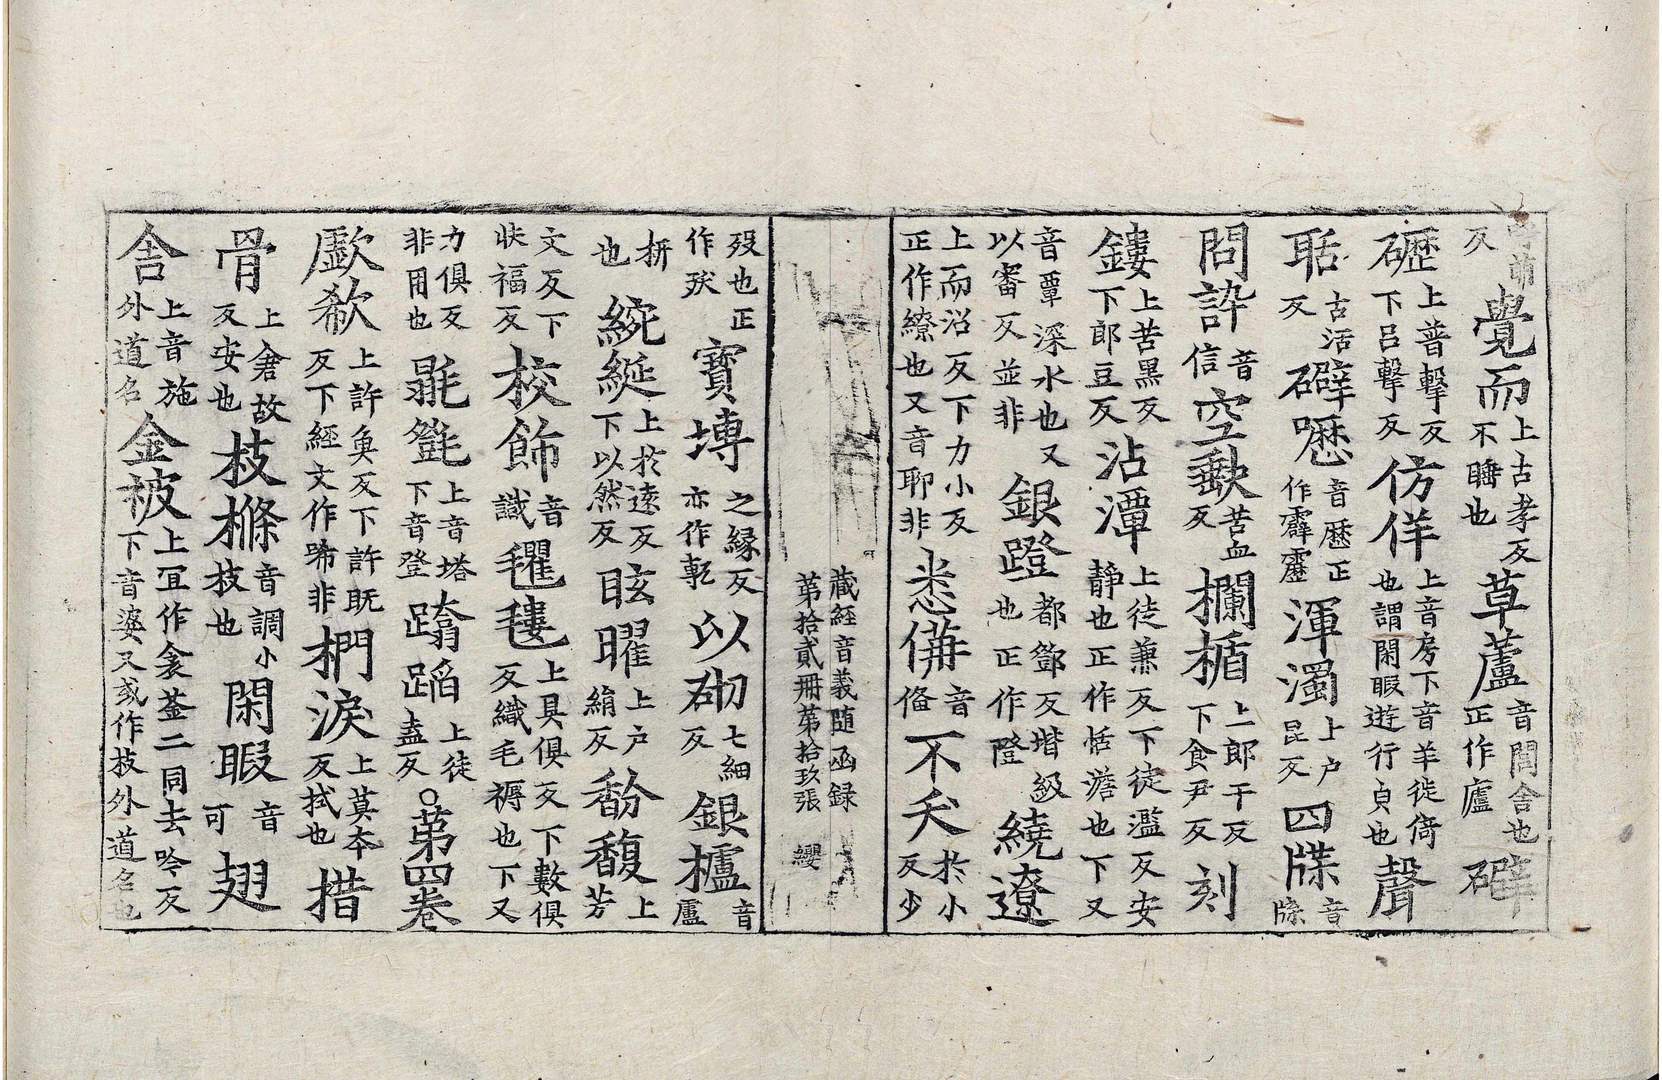 反
覺而上古孝反不睡也草蘆音閭舍也正作廬礔
礰上普擊反下吕擊反仿佯上音房下音羊徙倚也謂閑暇遊行皃也聲
聒古活反礔音歷正作霹靂渾濁上户昆反四牒音牒
問訡音信空苦血反欄楯上郎干反下食尹反刻
鏤上苦黑反下郎豆反沾潭上徒兼反下徒濫反安靜也正作恬澹也下又
音覃深水也又以審反並非銀蹬都鄧反堦級也正作隥繞遼
上而沼反下力小反正作繚也又音聊非悉俻音俻不夭於小反少
藏經音義随函録
第拾貳冊第拾玖張 纓
殁也正作殀寶塼之縁反亦作甎以砌七細反銀櫨音盧
也綩綖上於逺反下以然反眩曜上户絹反馚馥上芳
文反下扶福反校飾音識氍𣯫上具俱反下數俱反織毛褥也下又
力俱反非用也毾㲪上音塔下音登蹹蹈上徒盍反○第四卷
歔欷上許魚反下許既反下經文作唏非捫淚上莫本反拭也措
骨上倉故反安也枝條音調小枝也閑暇音可翅
舍上音施外道名金被上冝作衾釡二同去吟反下音婆又或作枝外道名也